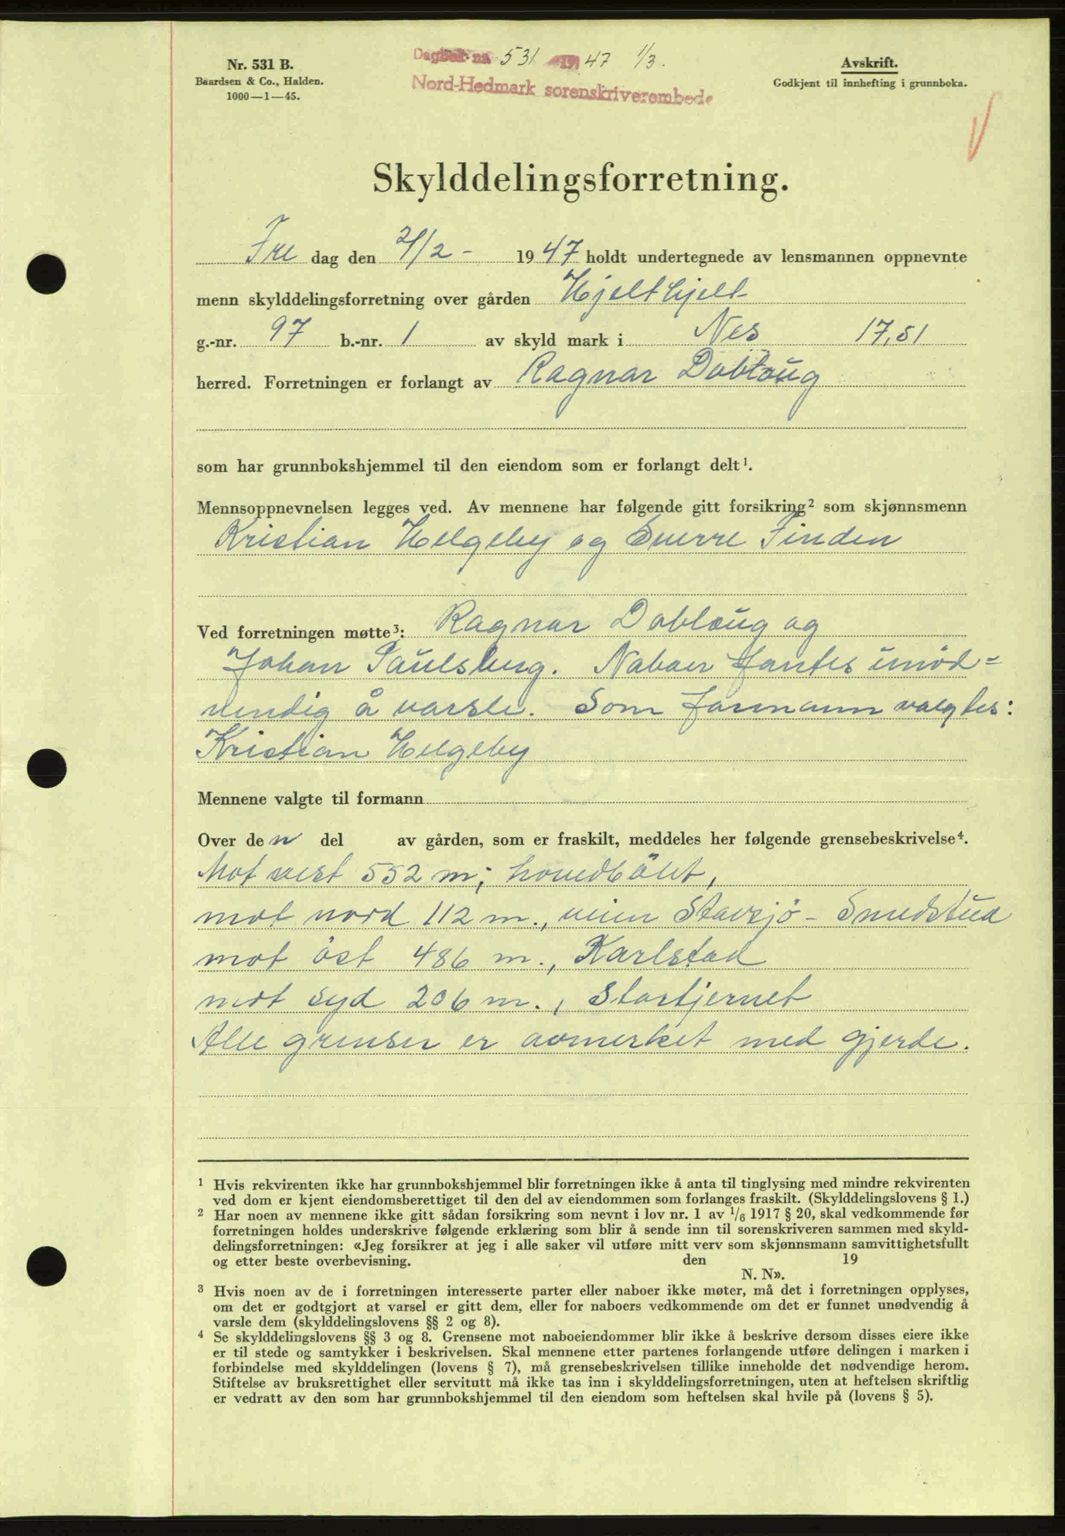 Nr. 531 B.
Baardsen & Co., Halden.
1000—1—45.
Dagbok nr. 531 1947 1/3.
Nord-Hedmark sorenskriverembede
Avskrift.
Godkjent til innhefting i grunnboka.
Skylddelingsforretning.
Fre dag den 21/2 - 1947 holdt undertegnede av lensmannen oppnevnte
menn skylddelingsforretning over gården Hjelthjelt
g.-nr. 97 b.-nr. 1 av skyld mark i Nes 17,51
herred. Forretningen er forlangt av Ragnar Dobloug
som har grunnbokshjemmel til den eiendom som er forlangt delt¹.
Mennsoppnevnelsen legges ved. Av mennene har følgende gitt forsikring² som skjønnsmenn
Kristian Helgeby og Sverre Finden
Ved forretningen møtte³: Ragnar Dobloug og
Johan Paulsberg. Naboer fantes unød=
vendig å varsle. Som formann valgtes:
Kristian Helgeby
Mennene valgte til formann
Over den del av gården, som er fraskilt, meddeles her følgende grensebeskrivelse⁴.
Mot vest 552 m; hovedbölet,
mot nord 112 m., veien Stavsjö - Smedstua
mot öst 486 m., Karlstad
mot syd 206 m., Stortjernet
Alle grenser er avmerket med gjerde.
¹ Hvis rekvirenten ikke har grunnbokshjemmel blir forretningen ikke å anta til tinglysing med mindre rekvirenten
ved dom er kjent eiendomsberettiget til den del av eiendommen som forlanges fraskilt. (Skylddelingslovens § 1.)
² Har noen av mennene ikke gitt sådan forsikring som nevnt i lov nr. 1 av 1/6 1917 § 20, skal vedkommende før
forretningen holdes underskrive følgende erklæring som blir å sende inn til sorenskriveren sammen med skyld-
delingsforretningen: «Jeg forsikrer at jeg i alle saker vil utføre mitt verv som skjønnsmann samvittighetsfullt
og etter beste overbevisning. den 19
N. N».
³ Hvis noen av de i forretningen interesserte parter eller naboer ikke møter, må det i forretningen opplyses,
om det er godtgjort at varsel er gitt dem, eller for naboers vedkommende om det er funnet unødvendig å
varsle dem (skylddelingslovens §§ 2 og 8).
⁴ Se skylddelingslovens §§ 3 og 8. Grensene mot naboeiendommer blir ikke å beskrive dersom disses eiere ikke
er til stede og samtykker i beskrivelsen. Skal mennene etter partenes forlangende utføre delingen i marken i
forbindelse med skylddelingen (lovens § 7), må grensebeskrivelsen tillike inneholde det nødvendige herom.
Stiftelse av bruksrettighet eller servitutt må ikke tas inn i skylddelingsforretningen, uten at heftelsen skriftlig
er vedratt av den som har grunnbokshjemmel til den eiendom som heftelsen skal hvile på (lovens § 5).